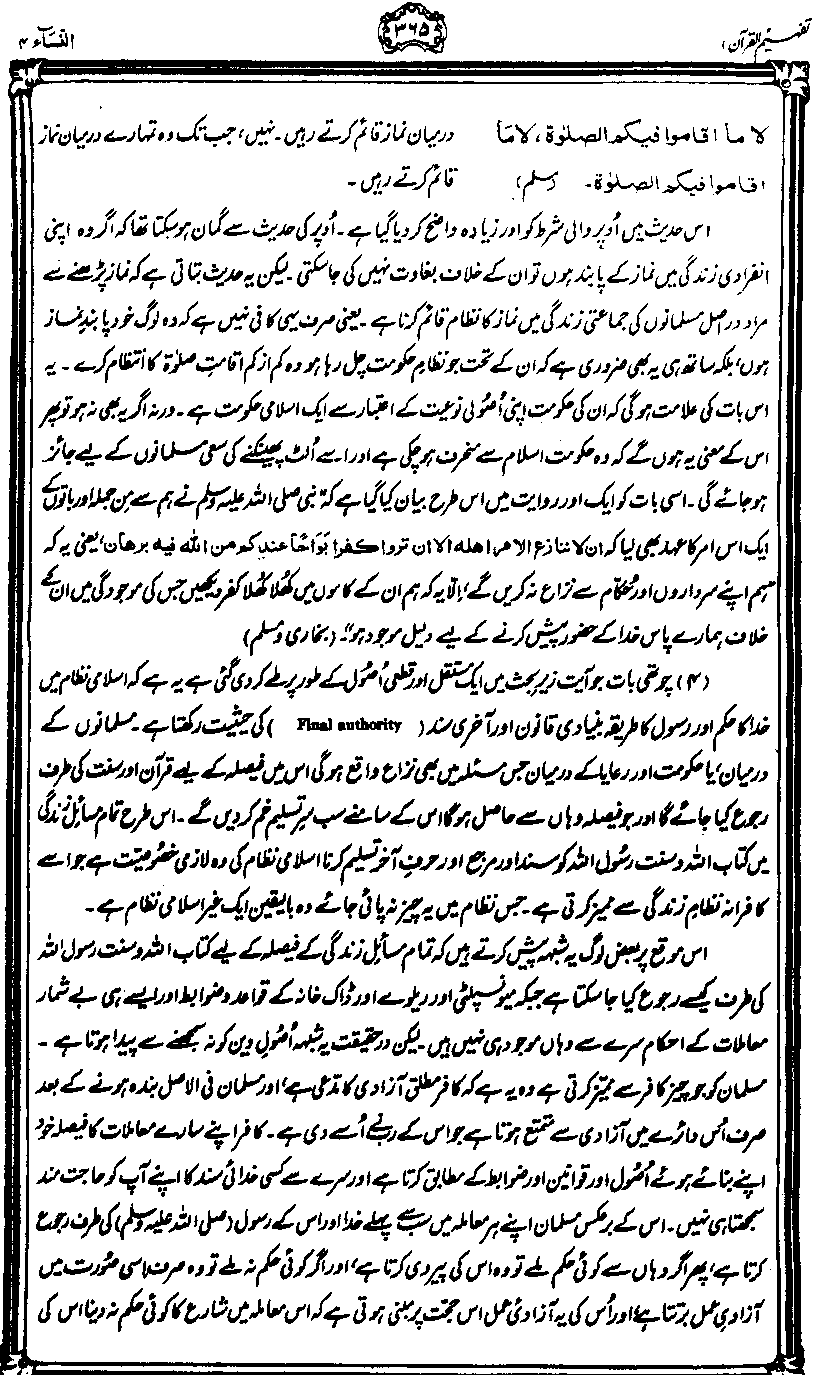 تفہیم القرآن ۱
۳۶۵
النساء ۴
لا ما اقاموا فیکم الصلوٰة، لا ما
اقاموا فیکم الصلوٰة۔ (مسلم)
درمیان نماز قائم کرتے رہیں۔ نہیں، جب تک وہ تمہارے درمیان نماز
قائم کرتے رہیں۔
اس حدیث میں اُوپر والی شرط کو اور زیادہ واضح کر دیا گیا ہے۔ اُوپر کی حدیث سے گمان ہو سکتا تھا کہ اگر وہ اپنی
انفرادی زندگی میں نماز کے پابند ہوں تو ان کے خلاف بغاوت نہیں کی جا سکتی۔ لیکن یہ حدیث بتاتی ہے کہ نماز پڑھنے سے
مراد دراصل مسلمانوں کی جماعتی زندگی میں نماز کا نظام قائم کرنا ہے۔ یعنی صرف یہی کافی نہیں ہے کہ وہ لوگ خود پابندِ نماز
ہوں، بلکہ ساتھ ہی یہ بھی ضروری ہے کہ ان کے تحت جو نظامِ حکومت چل رہا ہو وہ کم از کم اقامتِ صلوٰۃ کا انتظام کرے۔ یہ
اس بات کی علامت ہو گی کہ ان کی حکومت اپنی اُصولی نوعیت کے اعتبار سے ایک اسلامی حکومت ہے۔ ورنہ اگر یہ بھی نہ ہو تو پھر
اس کے معنی یہ ہوں گے کہ وہ حکومت اسلام سے منحرف ہو چکی ہے اور اسے اُلٹ پھینکنے کی سعی مسلمانوں کے لیے جائز
ہو جائے گی۔ اسی بات کو ایک اور روایت میں اس طرح بیان کیا گیا ہے کہ ”نبی صلی اللہ علیہ وسلم نے ہم سے من جملہ اور باتوں کے
ایک اس امر کا عہد بھی لیا کہ ان لا ننازع الامر اھله الا ان تروا کفرا بَوَاحًا عندکم من اللہ فیه برھان، یعنی یہ کہ
ہم اپنے سرداروں اور حُکّام سے نزاع نہ کریں گے، اِلّا یہ کہ ہم ان کے کاموں میں کھُلا کھُلا کفر دیکھیں جس کی موجودگی میں ان کے
خلاف ہمارے پاس خدا کے حضور پیش کرنے کے لیے دلیل موجود ہو“۔ (بخاری و مسلم)
(۴) چوتھی بات جو آیت زیرِ بحث میں ایک مستقل اور قطعی اُصول کے طور پر طے کر دی گئی ہے یہ ہے کہ اسلامی نظام میں
خدا کا حکم اور رسول کا طریقہ بنیادی قانون اور آخری سند (Final authority) کی حیثیت رکھتا ہے۔ مسلمانوں کے
درمیان، یا حکومت اور رعایا کے درمیان جس مسئلہ میں بھی نزاع واقع ہو گی اس میں فیصلہ کے لیے قرآن اور سنت کی طرف
رجوع کیا جائے گا اور جو فیصلہ وہاں سے حاصل ہو گا اس کے سامنے سب سرِ تسلیم خم کر دیں گے۔ اس طرح تمام مسائلِ زندگی
میں کتاب اللہ و سنت رسُول اللہ کو سند اور مرجع اور حرفِ آخر تسلیم کرنا اسلامی نظام کی وہ لازمی خصُوصیّت ہے جو اسے
کافرانہ نظامِ زندگی سے ممیز کرتی ہے۔ جس نظام میں یہ چیز نہ پائی جائے وہ بالیقین ایک غیر اسلامی نظام ہے۔
اس موقع پر بعض لوگ یہ شبہہ پیش کرتے ہیں کہ تمام مسائلِ زندگی کے فیصلہ کے لیے کتاب اللہ و سنت رسول اللہ
کی طرف کیسے رجوع کیا جا سکتا ہے جبکہ میونسپلٹی اور ریلوے اور ڈاک خانہ کے قواعد و ضوابط اور ایسے ہی بے شمار
معاملات کے احکام سرے سے وہاں موجود ہی نہیں ہیں۔ لیکن درحقیقت یہ شبہہ اُصولِ دین کو نہ سمجھنے سے پیدا ہوتا ہے۔
مسلمان کو جو چیز کافر سے ممیّز کرتی ہے وہ یہ ہے کہ کافر مطلق آزادی کا مدّعی ہے، اور مسلمان فی الاصل بندہ ہونے کے بعد
صرف اُس دائرے میں آزادی سے متمتع ہوتا ہے جو اس کے ربّ نے اُسے دی ہے۔ کافر اپنے سارے معاملات کا فیصلہ خود
اپنے بنائے ہوئے اُصول اور قوانین اور ضوابط کے مطابق کرتا ہے اور سرے سے کسی خدائی سند کا اپنے آپ کو حاجت مند
سمجھتا ہی نہیں۔ اس کے برعکس مسلمان اپنے ہر معاملہ میں سب سے پہلے خدا اور اس کے رسول (صلی اللہ علیہ وسلم) کی طرف رجوع
کرتا ہے، پھر اگر وہاں سے کوئی حکم ملے تو وہ اس کی پیروی کرتا ہے، اور اگر کوئی حکم نہ ملے تو وہ صرف اسی صُورت میں
آزادیِ عمل برتتا ہے، اور اُس کی یہ آزادیِ عمل اس حجت پر مبنی ہوتی ہے کہ اس معاملہ میں شارع کا کوئی حکم نہ دینا اس کی